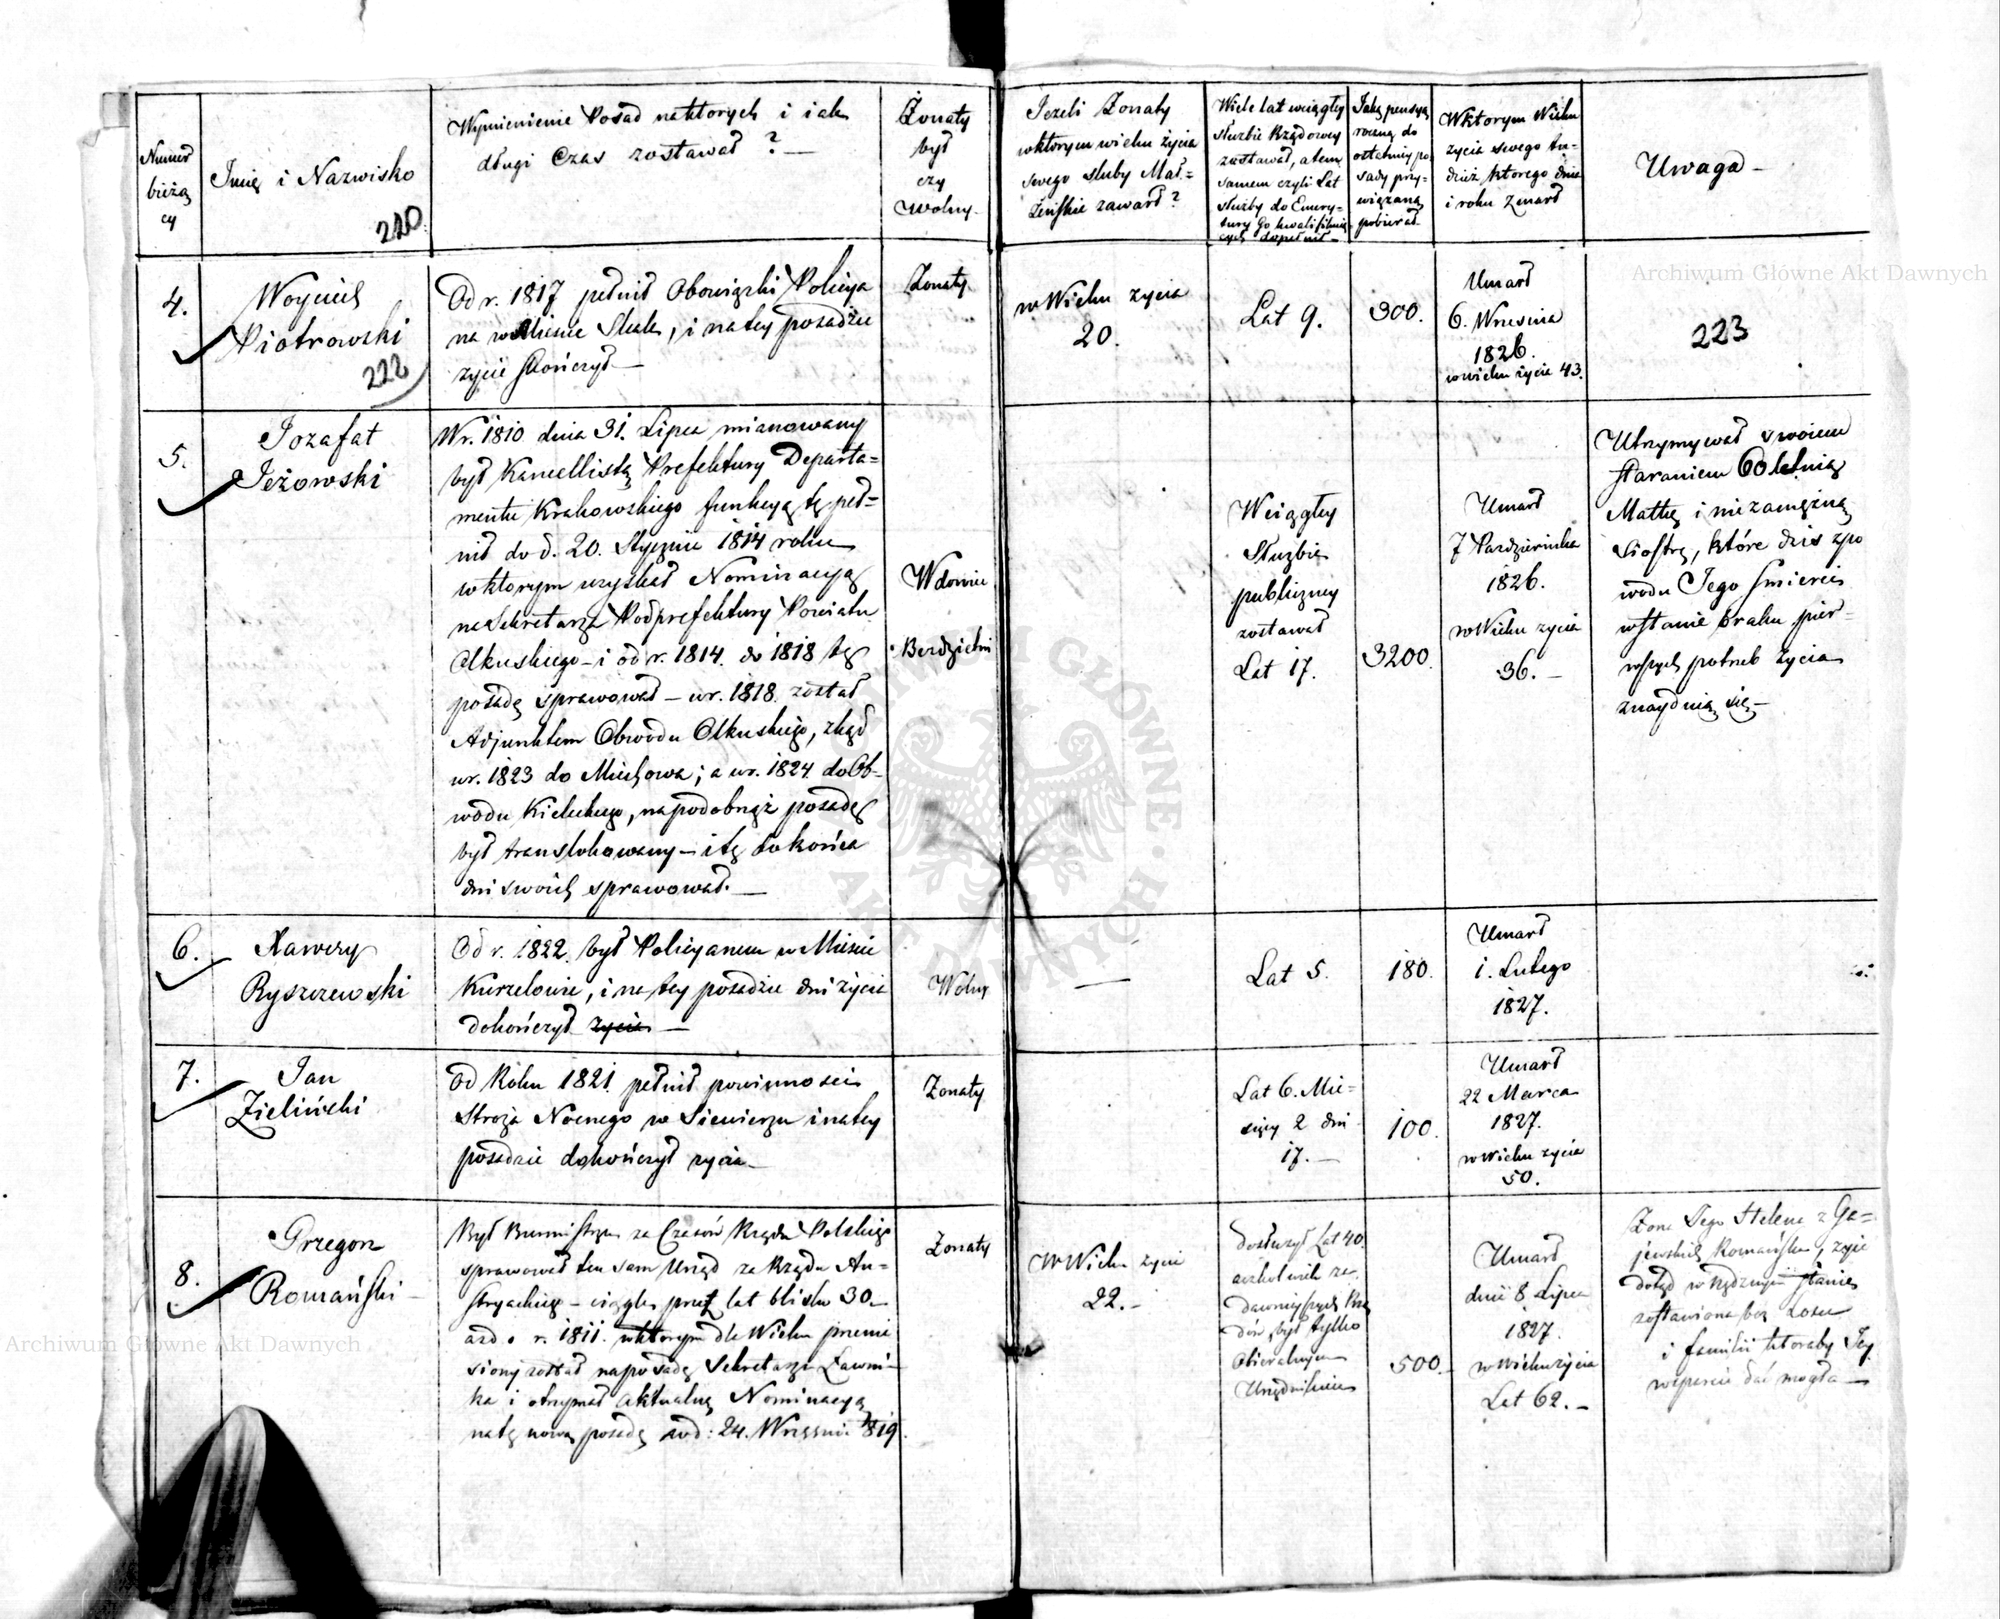 Numer
bieżą
cy
Imię i Nazwisko
220
Wymienienie Posad na których i iak
długi Czas zostawał ? —
Żonaty
był
czy
Wolny.
Jeżeli Żonaty
w którym wieku życia
swego śluby Mał=
żeńskie zawarł ?
Wiele lat w ciągłey
służbie Rządowey
zostawał, a tem
samem czyli Lat
służby do Emery=
tury Go kwalifikuią
cych dopełnił —
Jaką pensyą
roczną do
ostatniey po
sady przy=
wiązaną
pobierał
W którym Wieku
życia swego tu=
dzież którego dnia
i roku Zmarł
Uwaga —
4.
Woyciech
Piotrowski
222
Od r. 1817 pełnił Obowiązki Policya
na w Mieście Skale, i na tey posadzie
życie skończył —
Żonaty
w Wieku życia
20.
Lat 9.
300.
Umarł
6. Wrzesnia
1826.
w wieku życia 43.
223
5.
Jozafat
Jeżowski
W r. 1810 dnia 31. Lipca mianowany
był Kancellistą Prefektury Departa=
mentu Krakowskiego funkcyą tę peł=
nił do d. 20. Stycznia 1814 roku
w ktorym uzyskał Nominacyą
na Sekretarza Podprefektury Powiatu
Olkuskiego — i od r. 1814. do 1818 tę
posadę sprawował — w r. 1818. został
Adjunktem Obwodu Olkuskiego, zkąd
w r. 1823 do Miechowa ; a w r. 1824 do Ob-
wodu Kieleckiego, na podobnąż posadę
był translokowany — i tę do końca
dni swoich sprawował. —
Wdowiec
Bezdzietni
W ciągłey
Służbie
publiczney
zostawał
Lat 17.
3200.
Umarł
7 Pazdziernika
1826.
w Wieku życia
36. —
Utrzymywał swoiem
staraniem 60 letnią
Matkę i niezamężną
siostrę, które dziś z po
wodu Jego śmierci
w stanie braku pier=
wszych potrzeb życia
znayduią się —
6.
Xawery
Ryszczewski
Od r. 1822. był Policyantem w Mieście
Kurzelowie, i na tey posadzie dni życia
dokończył życia —
Wolny
—
Lat 5.
180.
Umarł
1. Lutego
1827.
7.
Jan
Zieliński
Od Roku 1821 pełnił powinności
Stroża Nocnego w Siewierzu i na tey
posadzie dokończył życia —
Żonaty
Lat 6. Mie=
sięcy 2 dni
17. —
100.
Umarł
22 Marca
1827.
w Wieku życia
50.
8.
Grzegorz
Romański —
Był Burmistrzem za Czasów Rządu Polskiego
sprawował ten sam Urząd za Rządu Au=
stryackiego — ciągle przez lat blisko 30 —
aż do r. 1811. w ktorym dla Wieku przenie
siony został na posadę Sekretarza Ławni=
ka i otrzymał aktualną Nominacyą
na tę nową posadę pod d: 24. Września 1819.
Żonaty
W Wieku życia
22. —
Dosłużył Lat 40.
aczkolwiek za
dawnieyszych Rzą
dów był tylko
Obieralnym
Urzędnikiem
500 —
Umarł
dnia 8 Lipca
1827.
w Wieku życia
Lat 62. —
Żona Jego Helena z Ga=
jewskich Romańska, żyie
dotąd w nędznym stanie
zostawiona bez Losu
i familii ktoraby Jey
wsparcie dać mogła —
Archiwum Główne Akt Dawnych
Archiwum Główne Akt Dawnych
ARCHIWUM GŁÓWNE AKT DAWNYCH